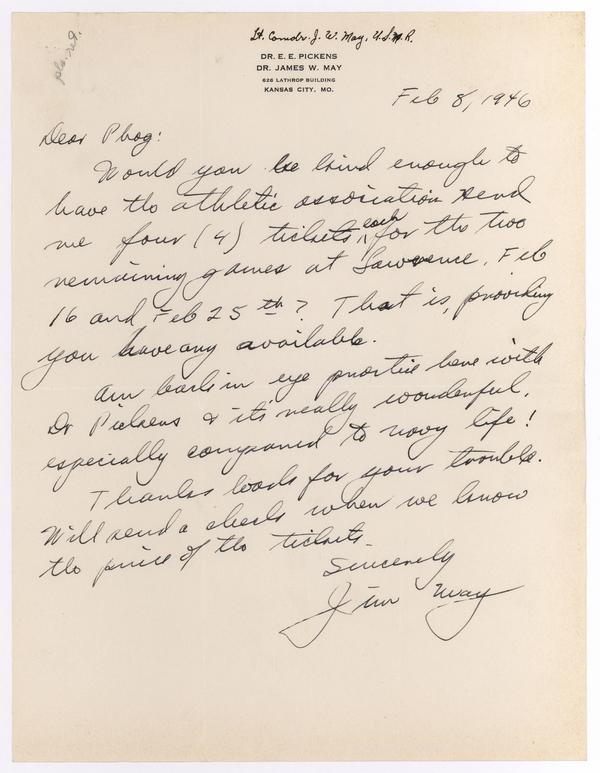 pls. ret.
Lt. Comdr. J. W. May, U.S.N.R.
DR. E. E. PICKENS
DR. JAMES W. MAY
626 LATHROP BUILDING
KANSAS CITY, MO.
Feb 8, 1946
Dear Phog:
Would you be kind enough to
have the athletic association send
me four (4) tickets each for the two
remaining games at Lawrence, Feb
16 and Feb 25th? That is, providing
you have any available.
Am back in eye practice here with
Dr Pickens & it's really wonderful,
especially compared to navy life!
Thanks loads for your trouble.
Will send a check when we know
the price of the tickets.
Sincerely
Jim May